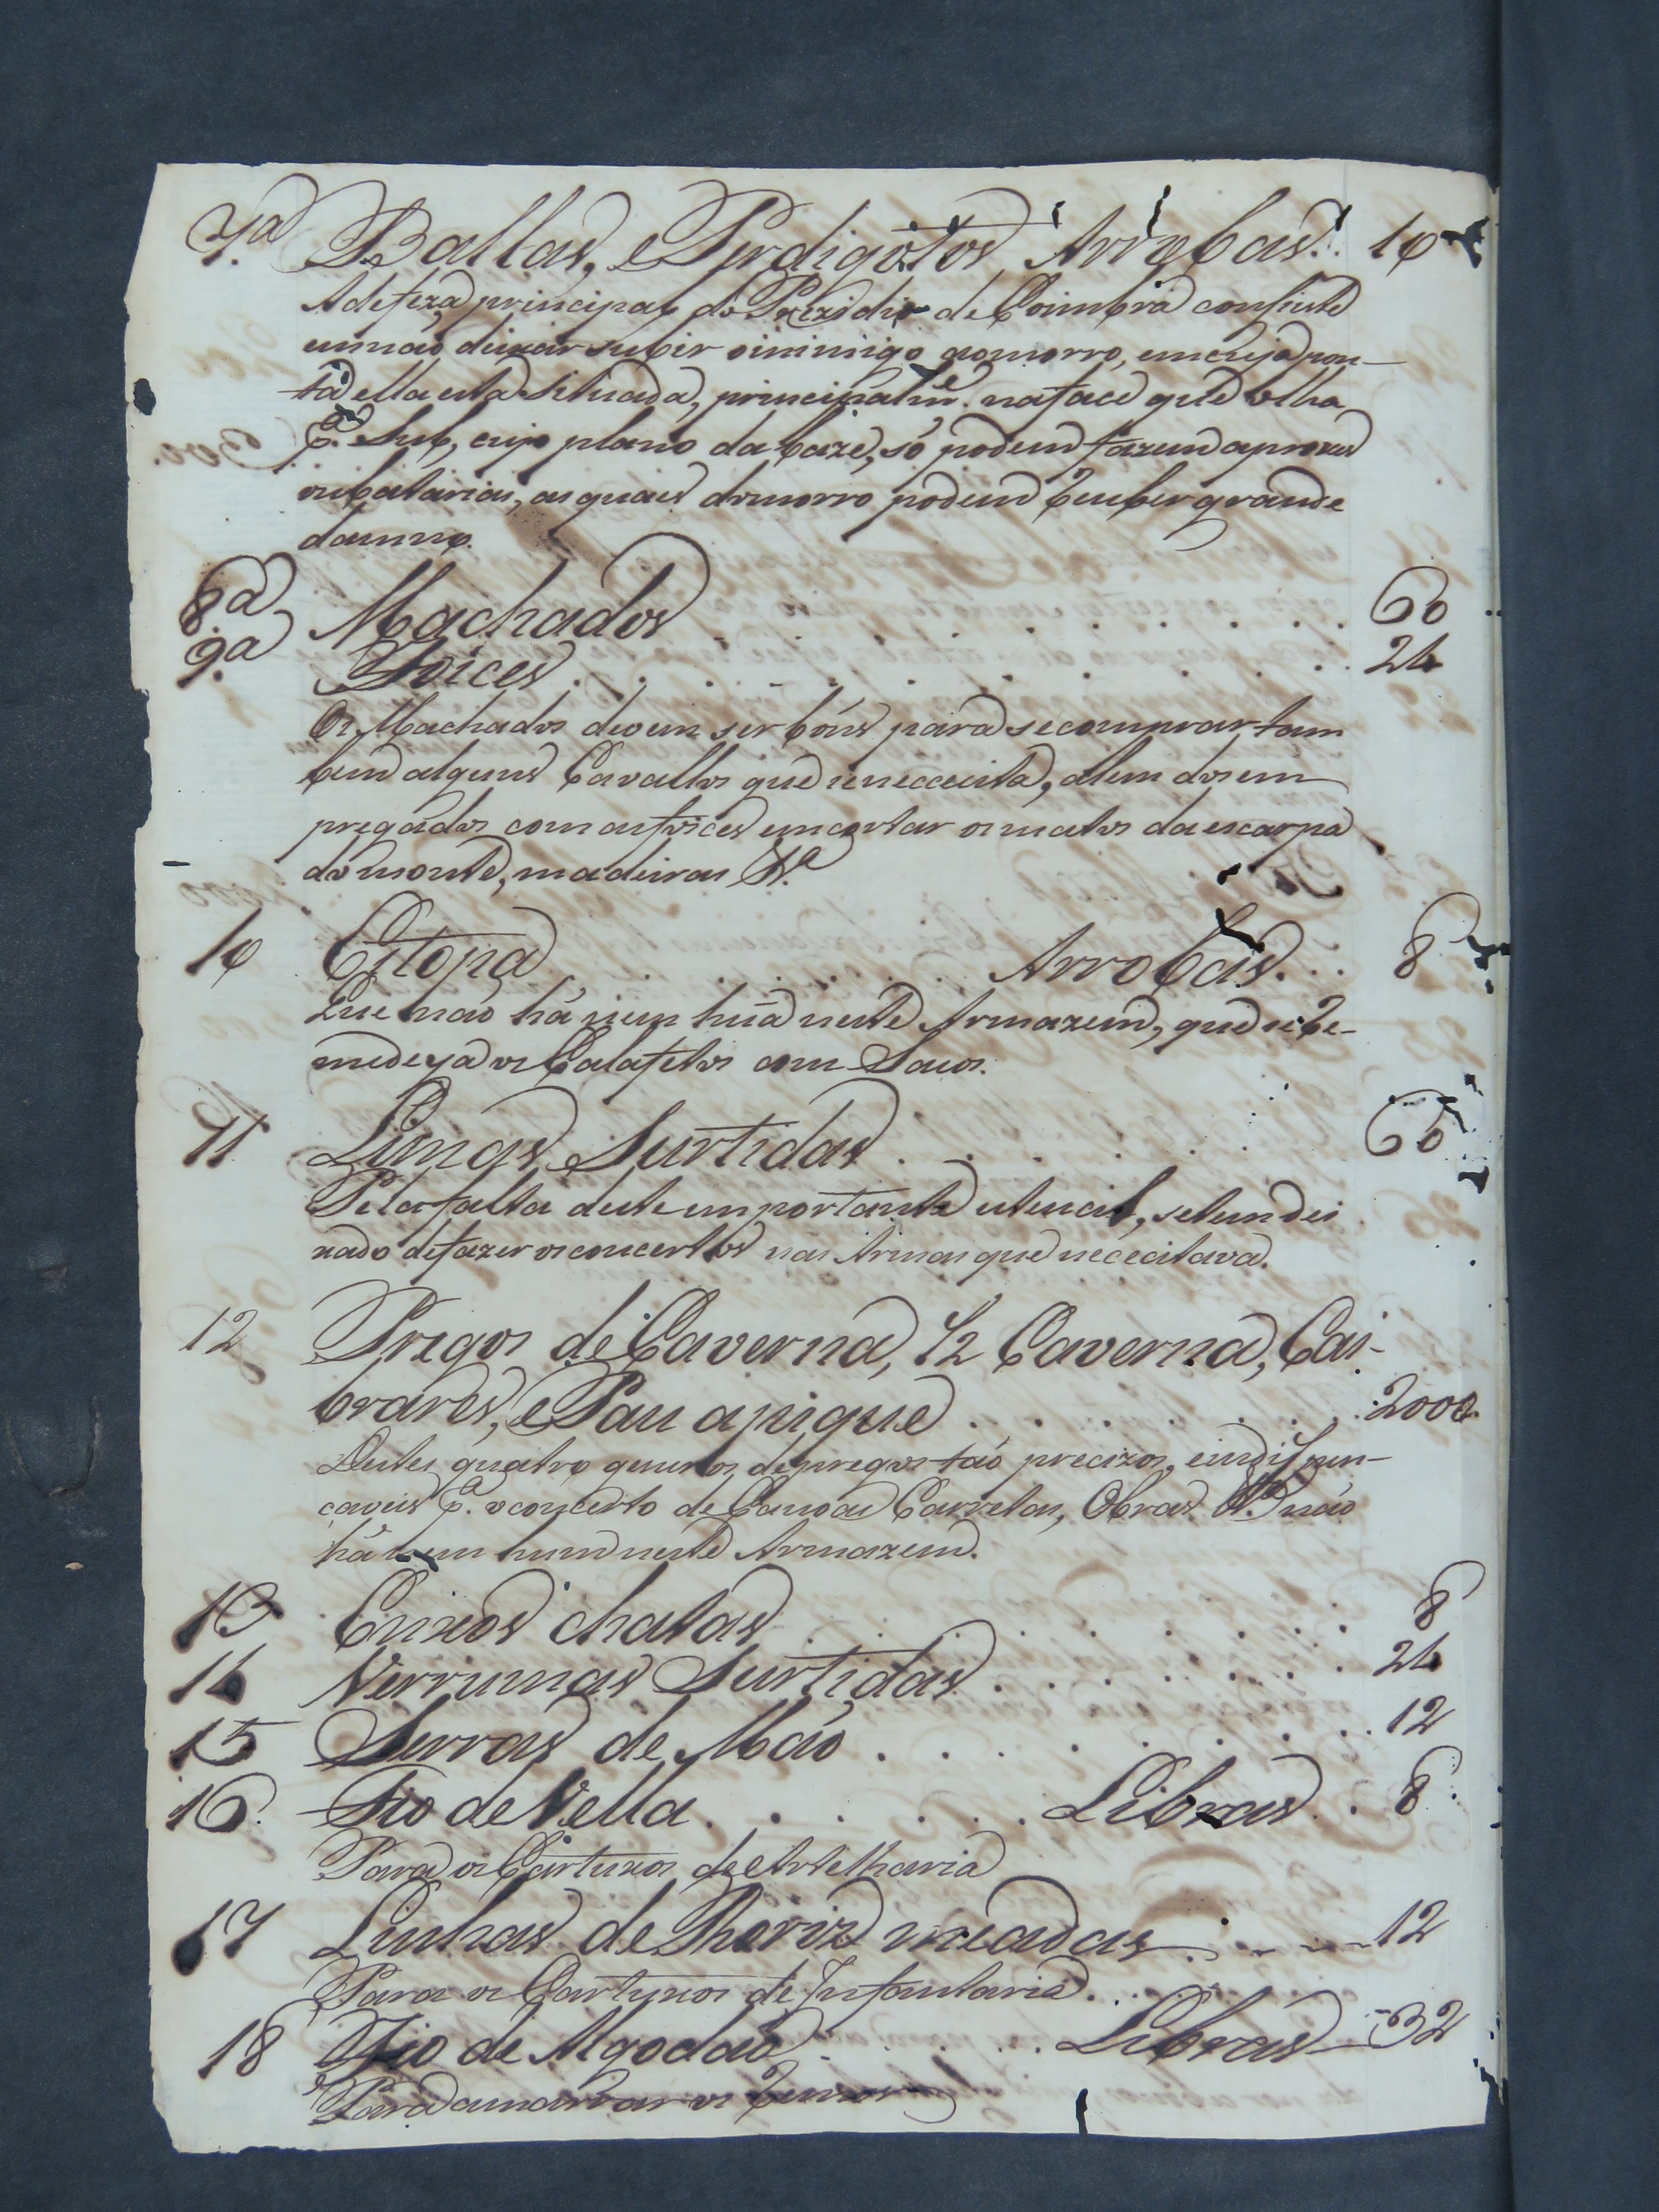 7.ª Ballas, e Perdigotos Arrobas.. 10
A defeza principal do Prezidio de Coimbra consiste
em não deixar subir o inimigo ao morro, em cuja pon-
ta ella esta situada, principalm.e na face que olha
p.ª Sul, cujo plano da baze, só podem fazem aproxes
ou batarias, as quais do morro podem receber grande
damno.
8.ª Machados . . . . . . . 60
9.ª Foices . . . . . . . 24
Os Machados devem ser bóns para se comprar tam
bem alguns Cavallos que se necececita, alem dos em
pregados com as foices em cortar os matos da escarpa
do monte, madeiras &.ª
10 Estopa . . . . . Arrobas. . . 8
Que não há nem hũa neste Armazem, que se re-
medeya os Calafetos com Sacos.
11 Limas Surtidas . . . . . . 60
Pela falta deste importante utencil, se tem dei
xado de fazer os concertos nas Armas que nececitava.
12 Pregos de Caverna, 1/2 Caverna, Cai-
brares, e Pau apique . . . . . . 2000
Destes quatro generos de pregos tão precizos, e indispen-
caveis p.ª o concerto de Canoas Carretas, Obras &.ª não
há nem hum neste Armazem.
13 Enxos chatas . . . . . . . 8
14 Verrumas Surtidas . . . . . . 24
15 Serras de Mão . . . . . . . 12
16 Fio de Vella . . . . . . Libras . . 8
Para os Cartuxos de Artelharia
17 Linhas de Roriz meadas . . . 12
Para os Cartuxos de Infantaria . . .
18 Fio de Algodão . . . . . Libras 32
Para amarrar os